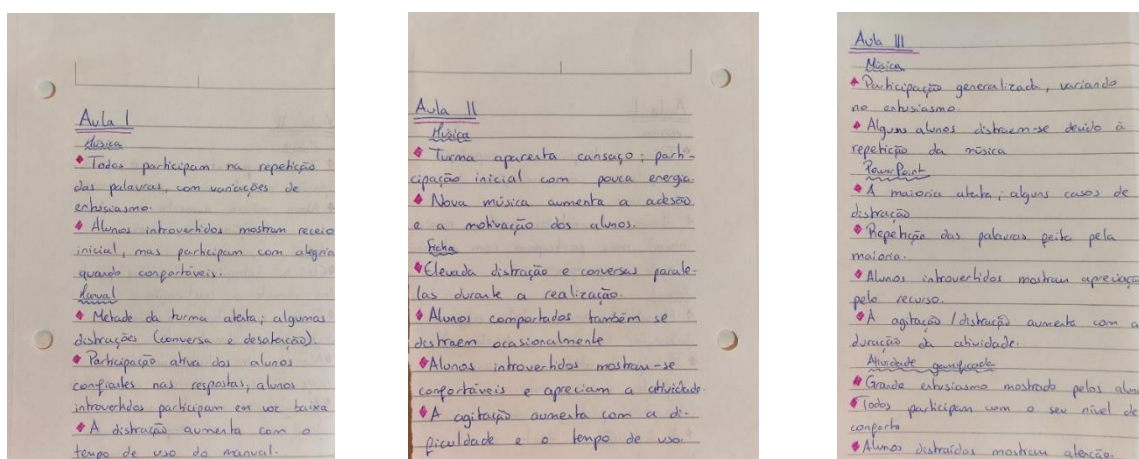 Aula I
Música
Todos participam na repetição
das palavras, com variações de
entusiasmo.
Alunos introvertidos mostram receio
inicial, mas participam com alegria
quando confortáveis.
Manual
Metade da turma atenta; algumas
distrações (conversa e desatenção).
Participação ativa dos alunos
confiantes nas respostas; alunos
introvertidos participam em voz baixa
A distração aumenta com o
tempo de uso do manual.
Aula II
Música
Turma aparenta cansaço; parti-
cipação inicial com pouca energia.
Nova música aumenta a adesão
e a motivação dos alunos.
Ficha
Elevada distração e conversas parale-
las durante a realização.
Alunos comportados também se
distraem ocasionalmente
Alunos introvertidos mostram-se
confortáveis e apreciam a atividade.
A agitação aumenta com a di-
ficuldade e o tempo de uso.
Aula III
Música
Participação generalizada, variando
no entusiasmo.
Alguns alunos distraem-se devido à
repetição da música
PowerPoint
A maioria atenta; alguns casos de
distração
Repetição das palavras feita pela
maioria.
Alunos introvertidos mostram apreciação
pelo recurso.
A agitação / distração aumenta com a
duração da atividade.
Atividade gamificada
Grande entusiasmo mostrado pelos alu
Todos participam com o seu nível de
conforto
Alunos distraídos mostram atenção.